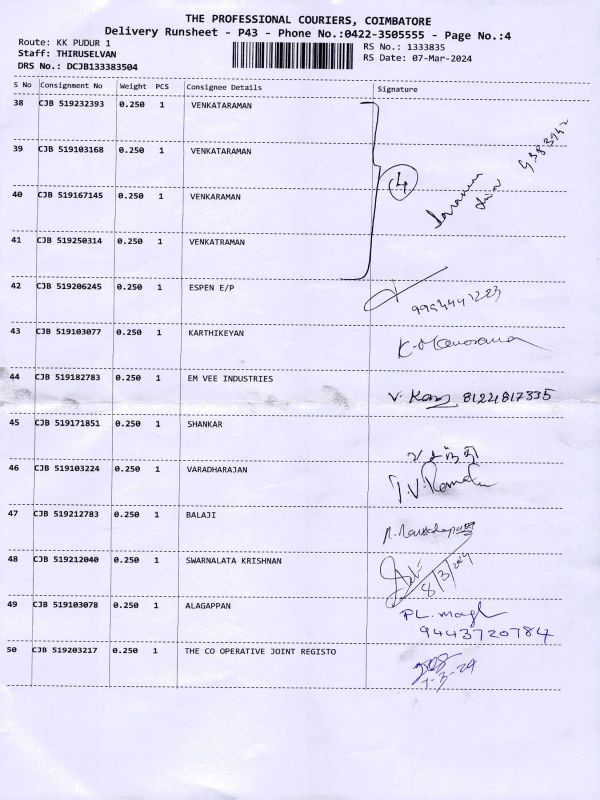 THE PROFESSIONAL COURIERS, COIMBATORE
Delivery Runsheet - P43 - Phone No.:0422-3505555 - Page No.:4
Route: KK PUDUR 1
RS No.: 1333835
Staff: THIRUSELVAN
RS Date: 07-Mar-2024
DRS No.: DCJB133383504
S No Consignment No Weight PCS Consignee Details Signature
38 CJB 519232393 0.250 1 VENKATARAMAN
39 CJB 519103168 0.250 1 VENKATARAMAN
40 CJB 519167145 0.250 1 VENKARAMAN
4
41 CJB 519250314 0.250 1 VENKATRAMAN
42 CJB 519206245 0.250 1 ESPEN E/P
43 CJB 519103077 0.250 1 KARTHIKEYAN
44 CJB 519182783 0.250 1 EM VEE INDUSTRIES
81224817335
45 CJB 519171851 0.250 1 SHANKAR
46 CJB 519103224 0.250 1 VARADHARAJAN
47 CJB 519212783 0.250 1 BALAJI
48 CJB 519212040 0.250 1 SWARNALATA KRISHNAN
49 CJB 519103078 0.250 1 ALAGAPPAN
9443720784
50 CJB 519203217 0.250 1 THE CO OPERATIVE JOINT REGISTO